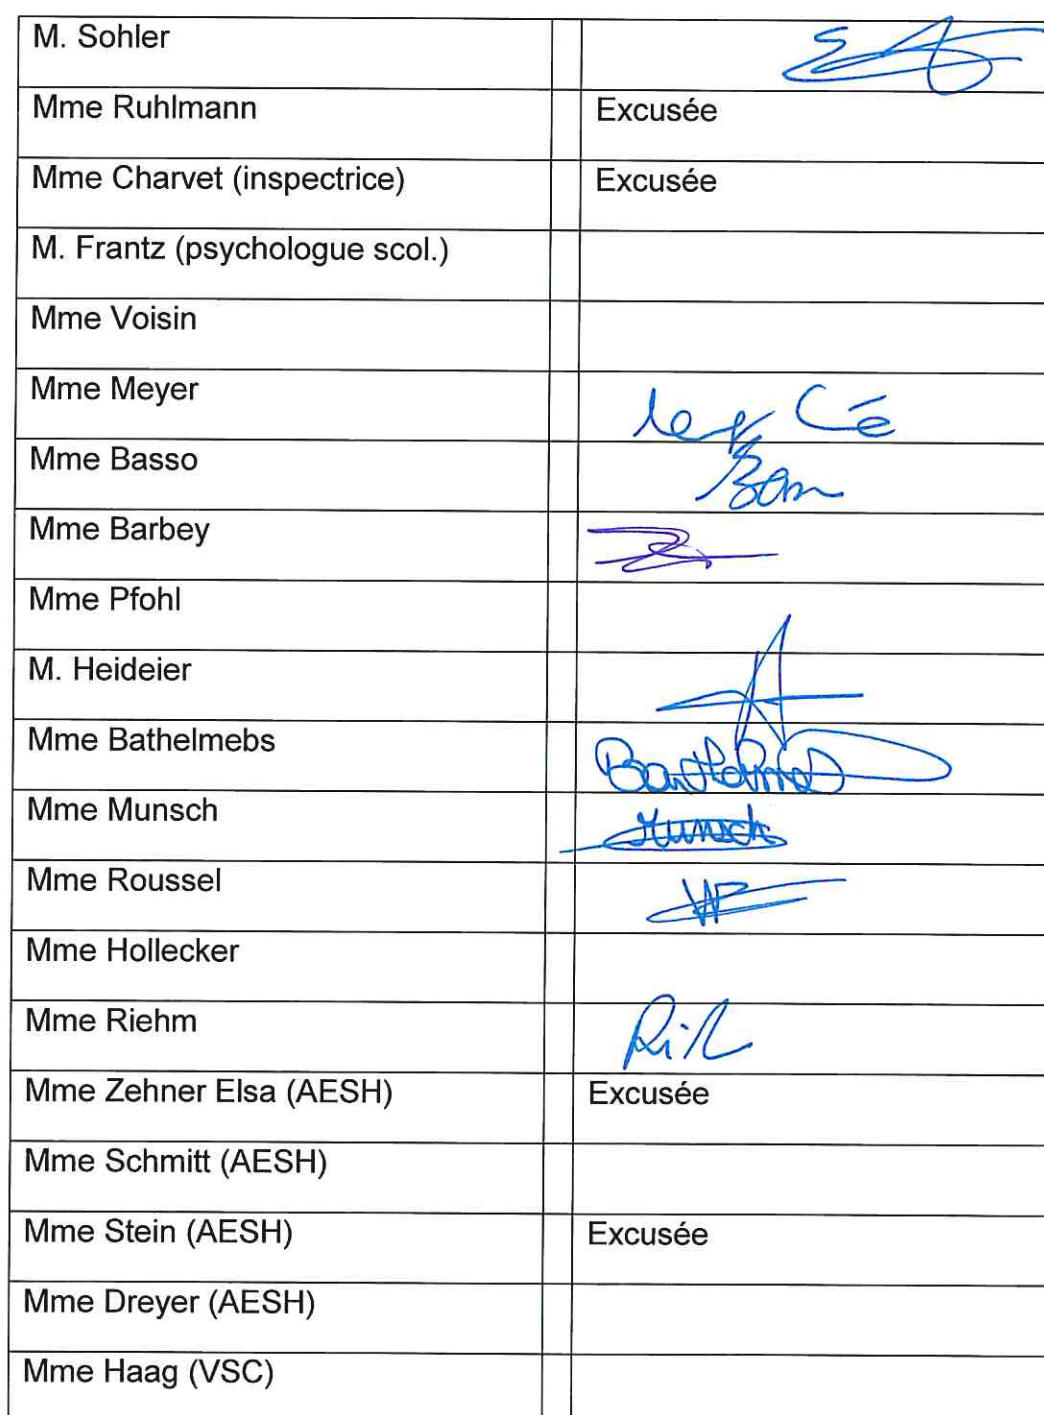 M. Sohler
Mme Ruhlmann Excusée
Mme Charvet (inspectrice) Excusée
M. Frantz (psychologue scol.)
Mme Voisin
Mme Meyer
Mme Basso
Mme Barbey
Mme Pfohl
M. Heideier
Mme Bathelmebs
Mme Munsch Munsch
Mme Roussel
Mme Hollecker
Mme Riehm
Mme Zehner Elsa (AESH) Excusée
Mme Schmitt (AESH)
Mme Stein (AESH) Excusée
Mme Dreyer (AESH)
Mme Haag (VSC)